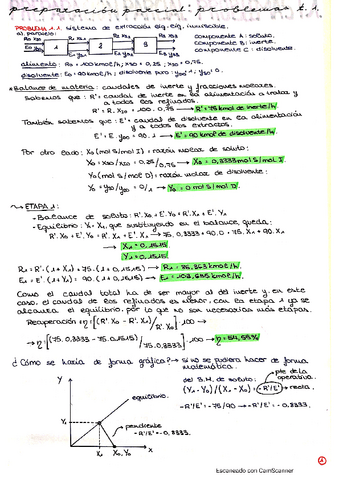 preparación parcial: problemas t.1
PROBLEMA 1.1. sistema de extracción líq-líq, inmiscible.
al paralelo:
componente A: soluto.
componente B: inerte.
componente C: disolvente.
alimento: R0 = 100 kmol/h; xA0 = 0,25; xB0 = 0,75.
disolvente: E0 = 90 kmol/h; disolvente puro:
* Balance de materia: caudales de inerte y fracciones molares.
Sabemos que: R' = caudal de inerte en la alimentación a tratar y
a todos los refinados.
→ R' = 75 kmol de inerte/h
También sabemos que: E' = caudal de disolvente en la alimentación
y a todos los extractos.
→ E' = 90 kmol de disolvente/h
Por otro lado: X0 (mol S/mol I) = razón molar de soluto:
→ X0 = 0,3333 mol S/mol I.
Y0 (mol S/mol D) = razón molar de disolvente:
→ Y0 = 0 mol S/mol D.
→ ETAPA 1:
- Balance de soluto: R'·X0 + E'·Y0 = R'·X1 + E'·Y1
- Equilibrio: Y1 = X1, que sustituyendo en el balance, queda:
R'·X0 + E'·Y0 = R'·X1 + E'·X1 → 75·0,3333 + 90·0 = 75·X1 + 90·X1
→ X1 = 0,1515
Y1 = 0,1515
R1 = R'·(1 + X1) = 75·(1 + 0,1515) →
E1 = E'·(1 + Y1) = 90·(1 + 0,1515) →
Como el caudal total ha de ser mayor al del inerte y, en este
caso, el caudal de los refinados es menor, con la etapa 1 ya se
alcanza el equilibrio, por lo que no son necesarias más etapas.
Recuperación = η = [(R'·X0 - R'·X1) / R'·X0]·100 →
→ η = [(75·0,3333 - 75·0,1515) / 75·0,3333]·100 → η = 54,55%
¿Cómo se haría de forma gráfica? → si no se pudiera hacer de forma
matemática.
del B.M. de soluto:
pte de la
operativa.
(Y1 - Y0) / (X1 - X0) = -R'/E' → recta.
-R'/E' = -75/90 → -R'/E' = -0,8333.
Y
equilibrio.
Y1
pendiente
-R'/E' = -0,8333.
X1
X0, Y0
X
Escaneado con CamScanner